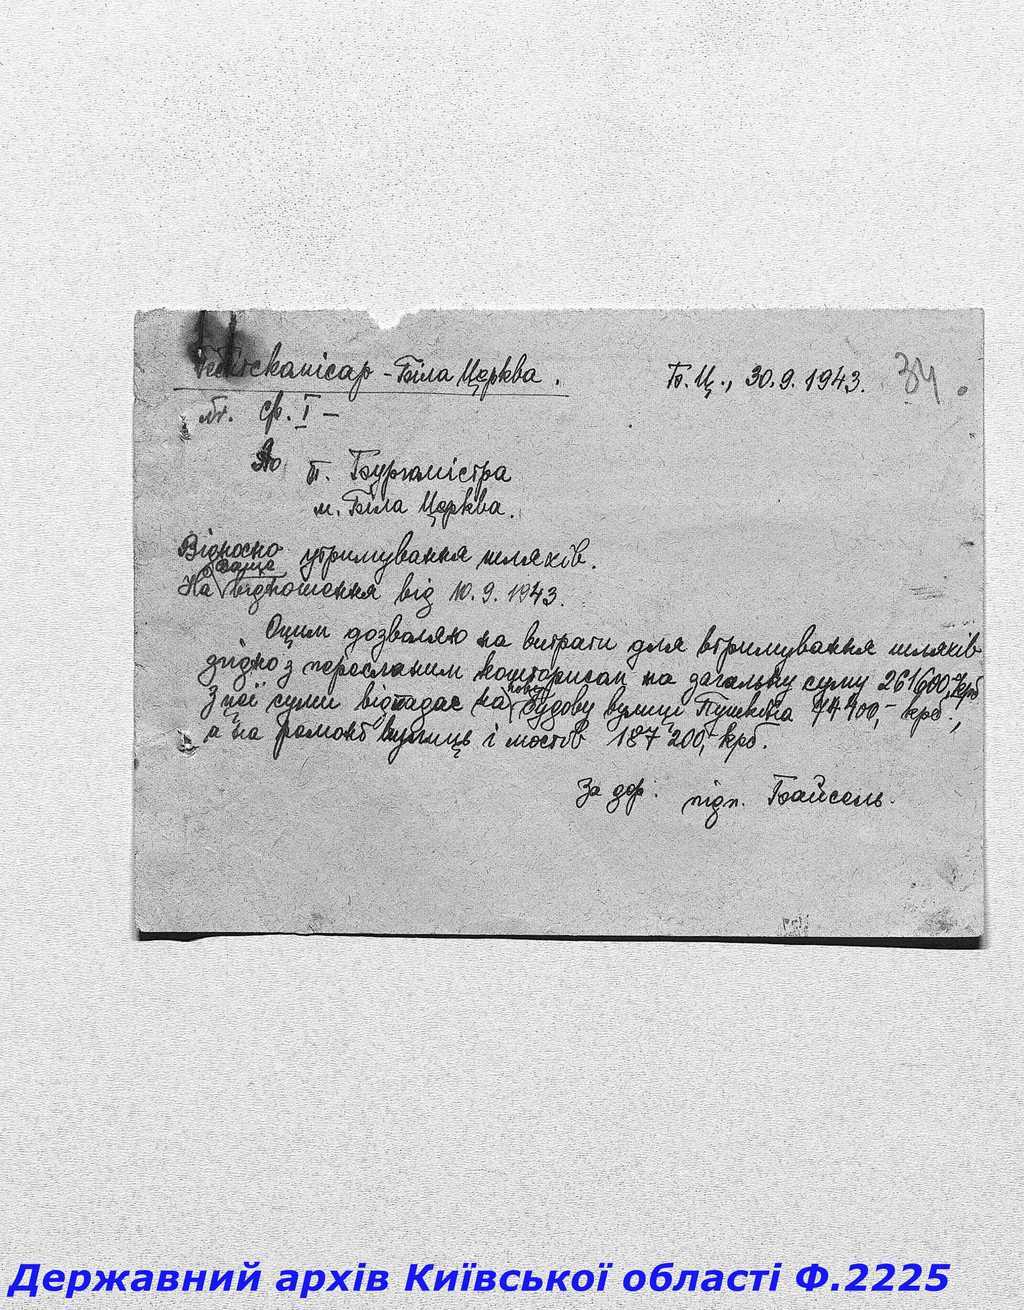 Гебітскомісар - Біла Церква.
Б. Ц., 30.9.1943. 34
Ф. I -
До п. Бургомістра
м. Біла Церква.
Відносно утримування шляхів.
На Ваше відношення від 10.9.1943.
Оцим дозволяю на витрати для втримування шляхів
згідно з пересланим кошторисом на загальну суму 261600,- крб
З цієї суми відпадає на нову будову вулиці Пушкіна 74400,- крб.,
а на ремонт вулиць і мостів 187200,- крб.
За дор: підп. Байсель.
Державний архів Київської області Ф.2225